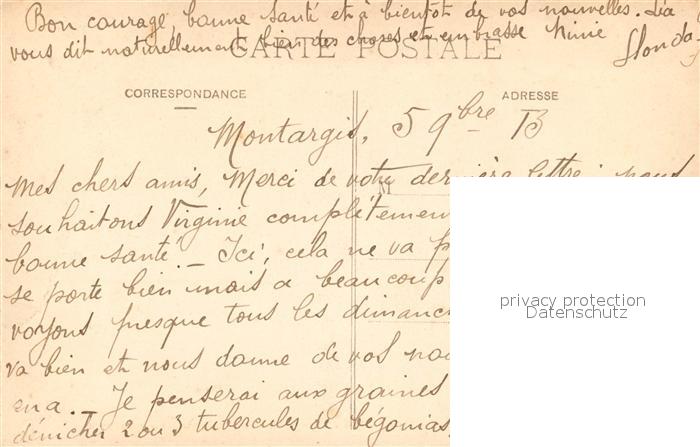 Bon courage, bonne santé et à bientôt de vos nouvelles. Léa
vous dit naturellement bien des choses et embrasse Ninie
CARTE POSTALE
CORRESPONDANCE
ADRESSE
Montargis, 5 9bre 13
Mes chers amis, Merci de votre dernière lettre, nous
M
souhaitons Virginie complètement
bonne santé - Ici, cela ne va
se porte bien mais a beaucoup
voyons presque tous les
va bien et nous donne de vos
en a. - Je penserai aux graines
dénicher 2 ou 3 tubercules de bégonias,
privacy protection
Datenschutz